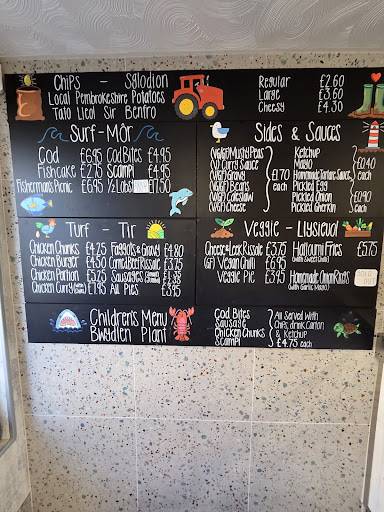 Chips - Sglodion
Local Pembrokeshire Potatoes
Tato Lleol Sir Benfro
Regular £2.60
Large £3.60
Cheesy £4.30
Surf - Môr
Cod £6.95 Cod Bites £4.95
Fishcake £2.75 Scampi £4.95
Fisherman's Picnic £6.95 ½ Lobster £17.50
Sides & Sauces
(VG)(GF) Mushy Peas
(V) Curry Sauce
(VG)(GF) Gravy
(VG)(GF) Beans
(V)(GF) Coleslaw
(V)(GF) Cheese
£1.70 each
Ketchup
Mayo
Homemade Tartare Sauce
£0.40 each
Pickled Egg
Pickled Onion
Pickled Gherkin
£0.90 each
Turf - Tir
Chicken Chunks £4.25 Faggots & Gravy £4.80
Chicken Burger £4.50 Corned Beef Rissole £3.75
Chicken Portion £5.20 Sausages
Chicken Curry £1.95 All Pies £3.95
Veggie - Llysieuol
Cheese & Leek Rissole £3.75
(GF) Vegan Chilli £6.95
Veggie Pie £3.95
Halloumi Fries £5.75
(with Sweet Chilli)
Homemade Onion Rings
(with Garlic Mayo)
SOLD OUT
Children's Menu
Bwydlen Plant
Cod Bites
Sausage
Chicken Chunks
Scampi
All Served With
Chips, drink Carton
& Ketchup
£4.75 each